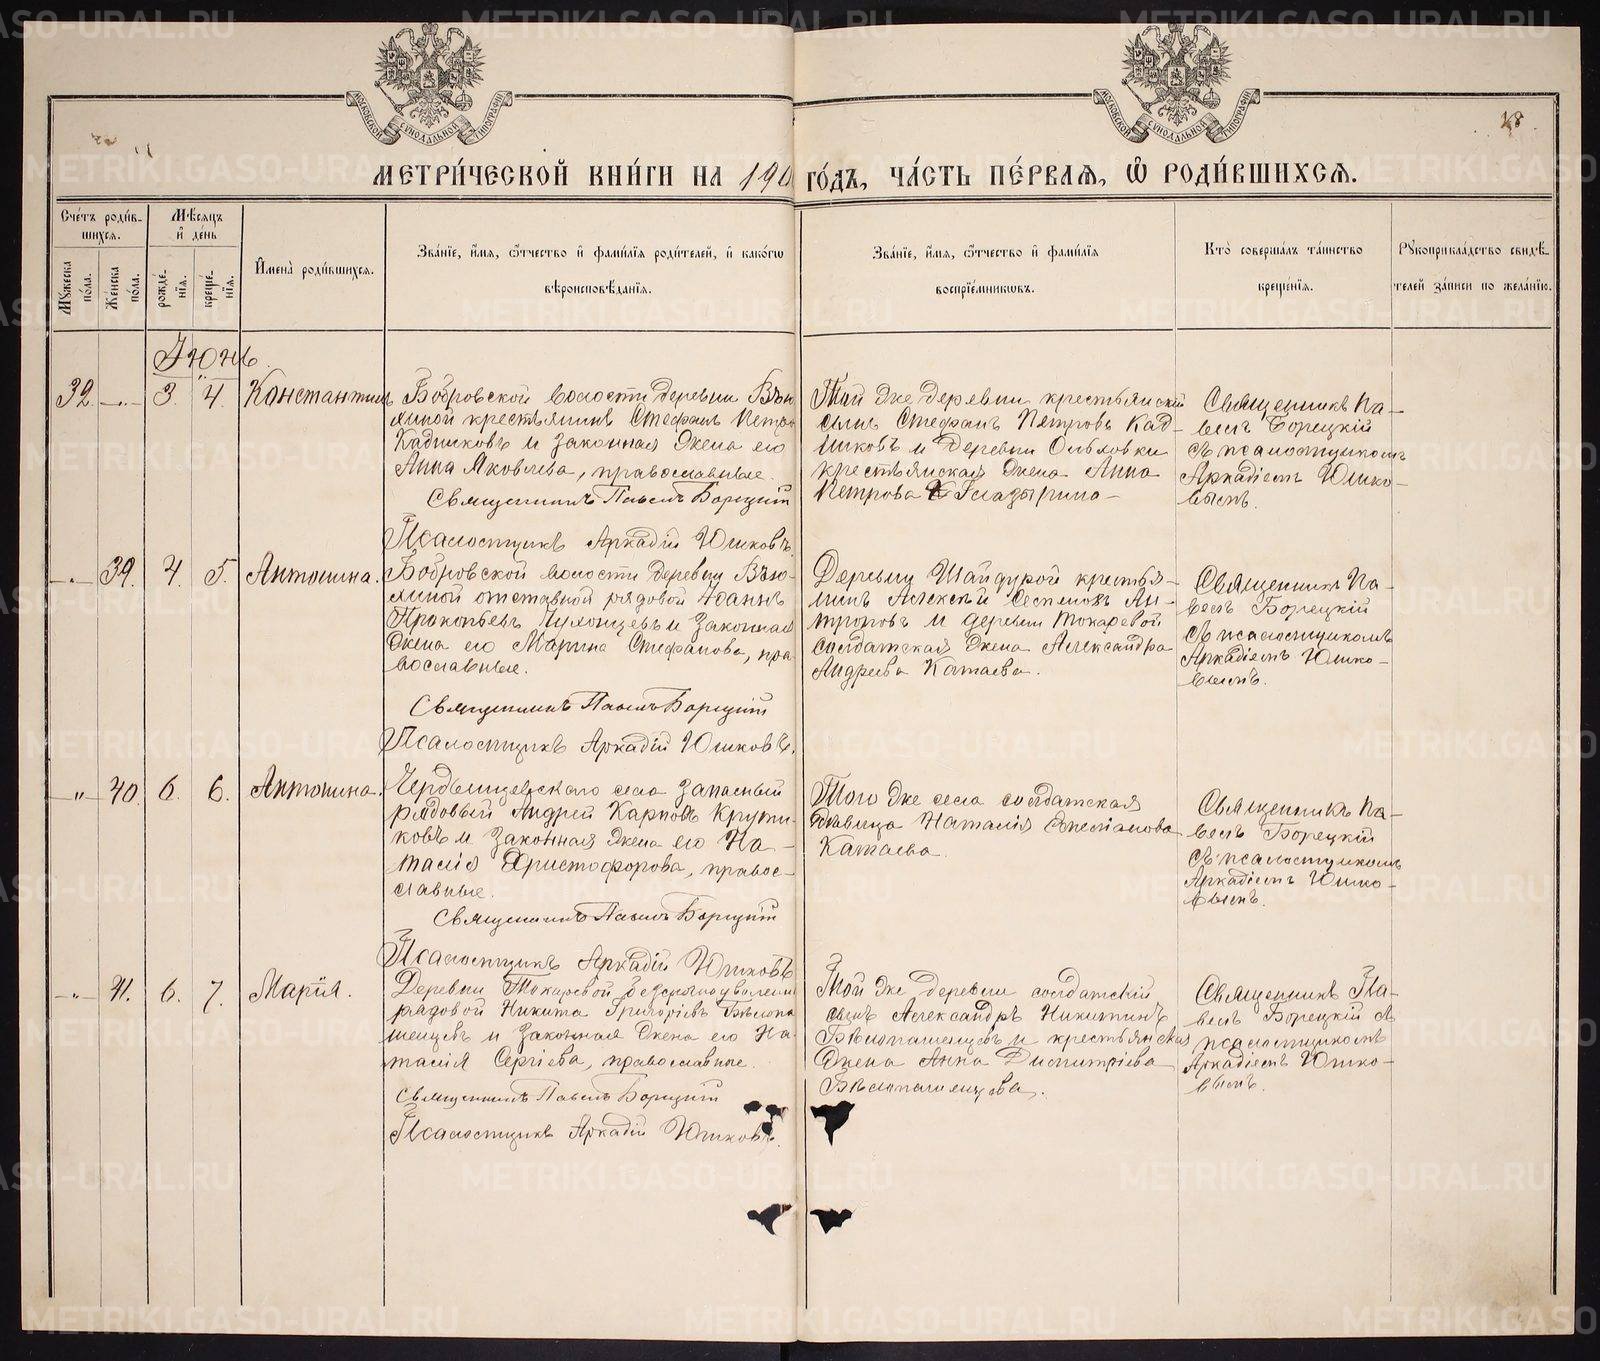 МЕТРИ́ЧЕСКОЙ КНИ́ГИ НА 190 ГО́ДЪ, ЧА́СТЬ ПЕ́РВАѦ, Ѡ҆ РОДИ́ВШИХСѦ.
18
Сче́тъ роди́в-
шихсѧ.
Мѣ́сѧцъ
и҆ де́нь
Мꙋ́жеска
по́ла.
Же́нска
по́ла.
рожде́-
нїѧ.
креще́-
нїѧ.
И҆мена̀ роди́вшихсѧ.
Зва́нїе, и҆́мѧ, ѻ҆́тчество и҆ фами́лїѧ роди́телей, и҆ како́гѡ
вѣроисповѣ́данїѧ.
Зва́нїе, и҆́мѧ, ѻ҆́тчество и҆ фами́лїѧ
воспрїе́мникѡвъ.
Кто̀ соверша́лъ та́инство
креще́нїѧ.
Рꙋкоприкла́дство свидѣ́-
телей за́писи по жела́нїю.
Іюнь
32. —„— 3. 4. Константинъ
Бобровской волости деревни
крестьянинъ Стефанъ Петровъ
Кадниковъ и законная жена его
Анна Яковлева, православные.
Священникъ Павелъ Борецкій
Псаломщикъ Аркадій Юшковъ.
Той же деревни крестьянскій
сынъ Стефанъ Петровъ Кад-
никовъ и деревни
крестьянская жена Анна
Петрова Гладырина
Священникъ Па-
велъ Борецкій
съ псаломщикомъ
Аркадіемъ Юшко-
вымъ.
—„— 39. 4. 5. Антонина.
Бобровской волости деревни
отставной рядовой Іоаннъ
Прокопьевъ и законная
жена его Марина Стефанова, пра-
вославные.
Священникъ Павелъ Борецкій
Псаломщикъ Аркадій Юшковъ.
Деревни Шайдурой крестья-
нинъ Алексѣй Ан-
троповъ и деревни Токаревой
солдатская жена Александра
Андреева Катаева.
Священникъ Па-
велъ Борецкій
съ псаломщикомъ
Аркадіемъ Юшко-
вымъ.
—„— 40. 6. 6. Антонина.
села запасный
рядовый Андрей Карповъ Крути-
ковъ и законная жена его На-
талія Христофорова, право-
славные.
Священникъ Павелъ Борецкій
Псаломщикъ Аркадій Юшковъ
Того же села солдатская
Наталія Емеліанова
Катаева.
Священникъ Па-
велъ Борецкій
съ псаломщикомъ
Аркадіемъ Юшко-
вымъ.
—„— 41. 6. 7. Марія.
Деревни Токаревой
рядовой Никита Григорьевъ Бѣлопа-
шенцевъ и законная жена его На-
талія Сергіева, православные.
Священникъ Павелъ Борецкій
Псаломщикъ Аркадій Юшковъ.
Той же деревни солдатскій
сынъ Александръ Никитинъ
Бѣлопашенцевъ и крестьянская
жена Анна Димитріева
Бѣлопашенцева.
Священникъ Па-
велъ Борецкій съ
псаломщикомъ
Аркадіемъ Юшко-
вымъ.
METRIKI.GASO-URAL.RU